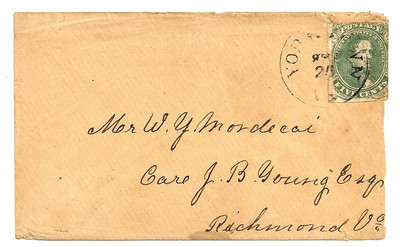 FIVE CENTS
YOR
25
Mr W. Y. Mordecai
Care J. B. Young Esq
Richmond Va